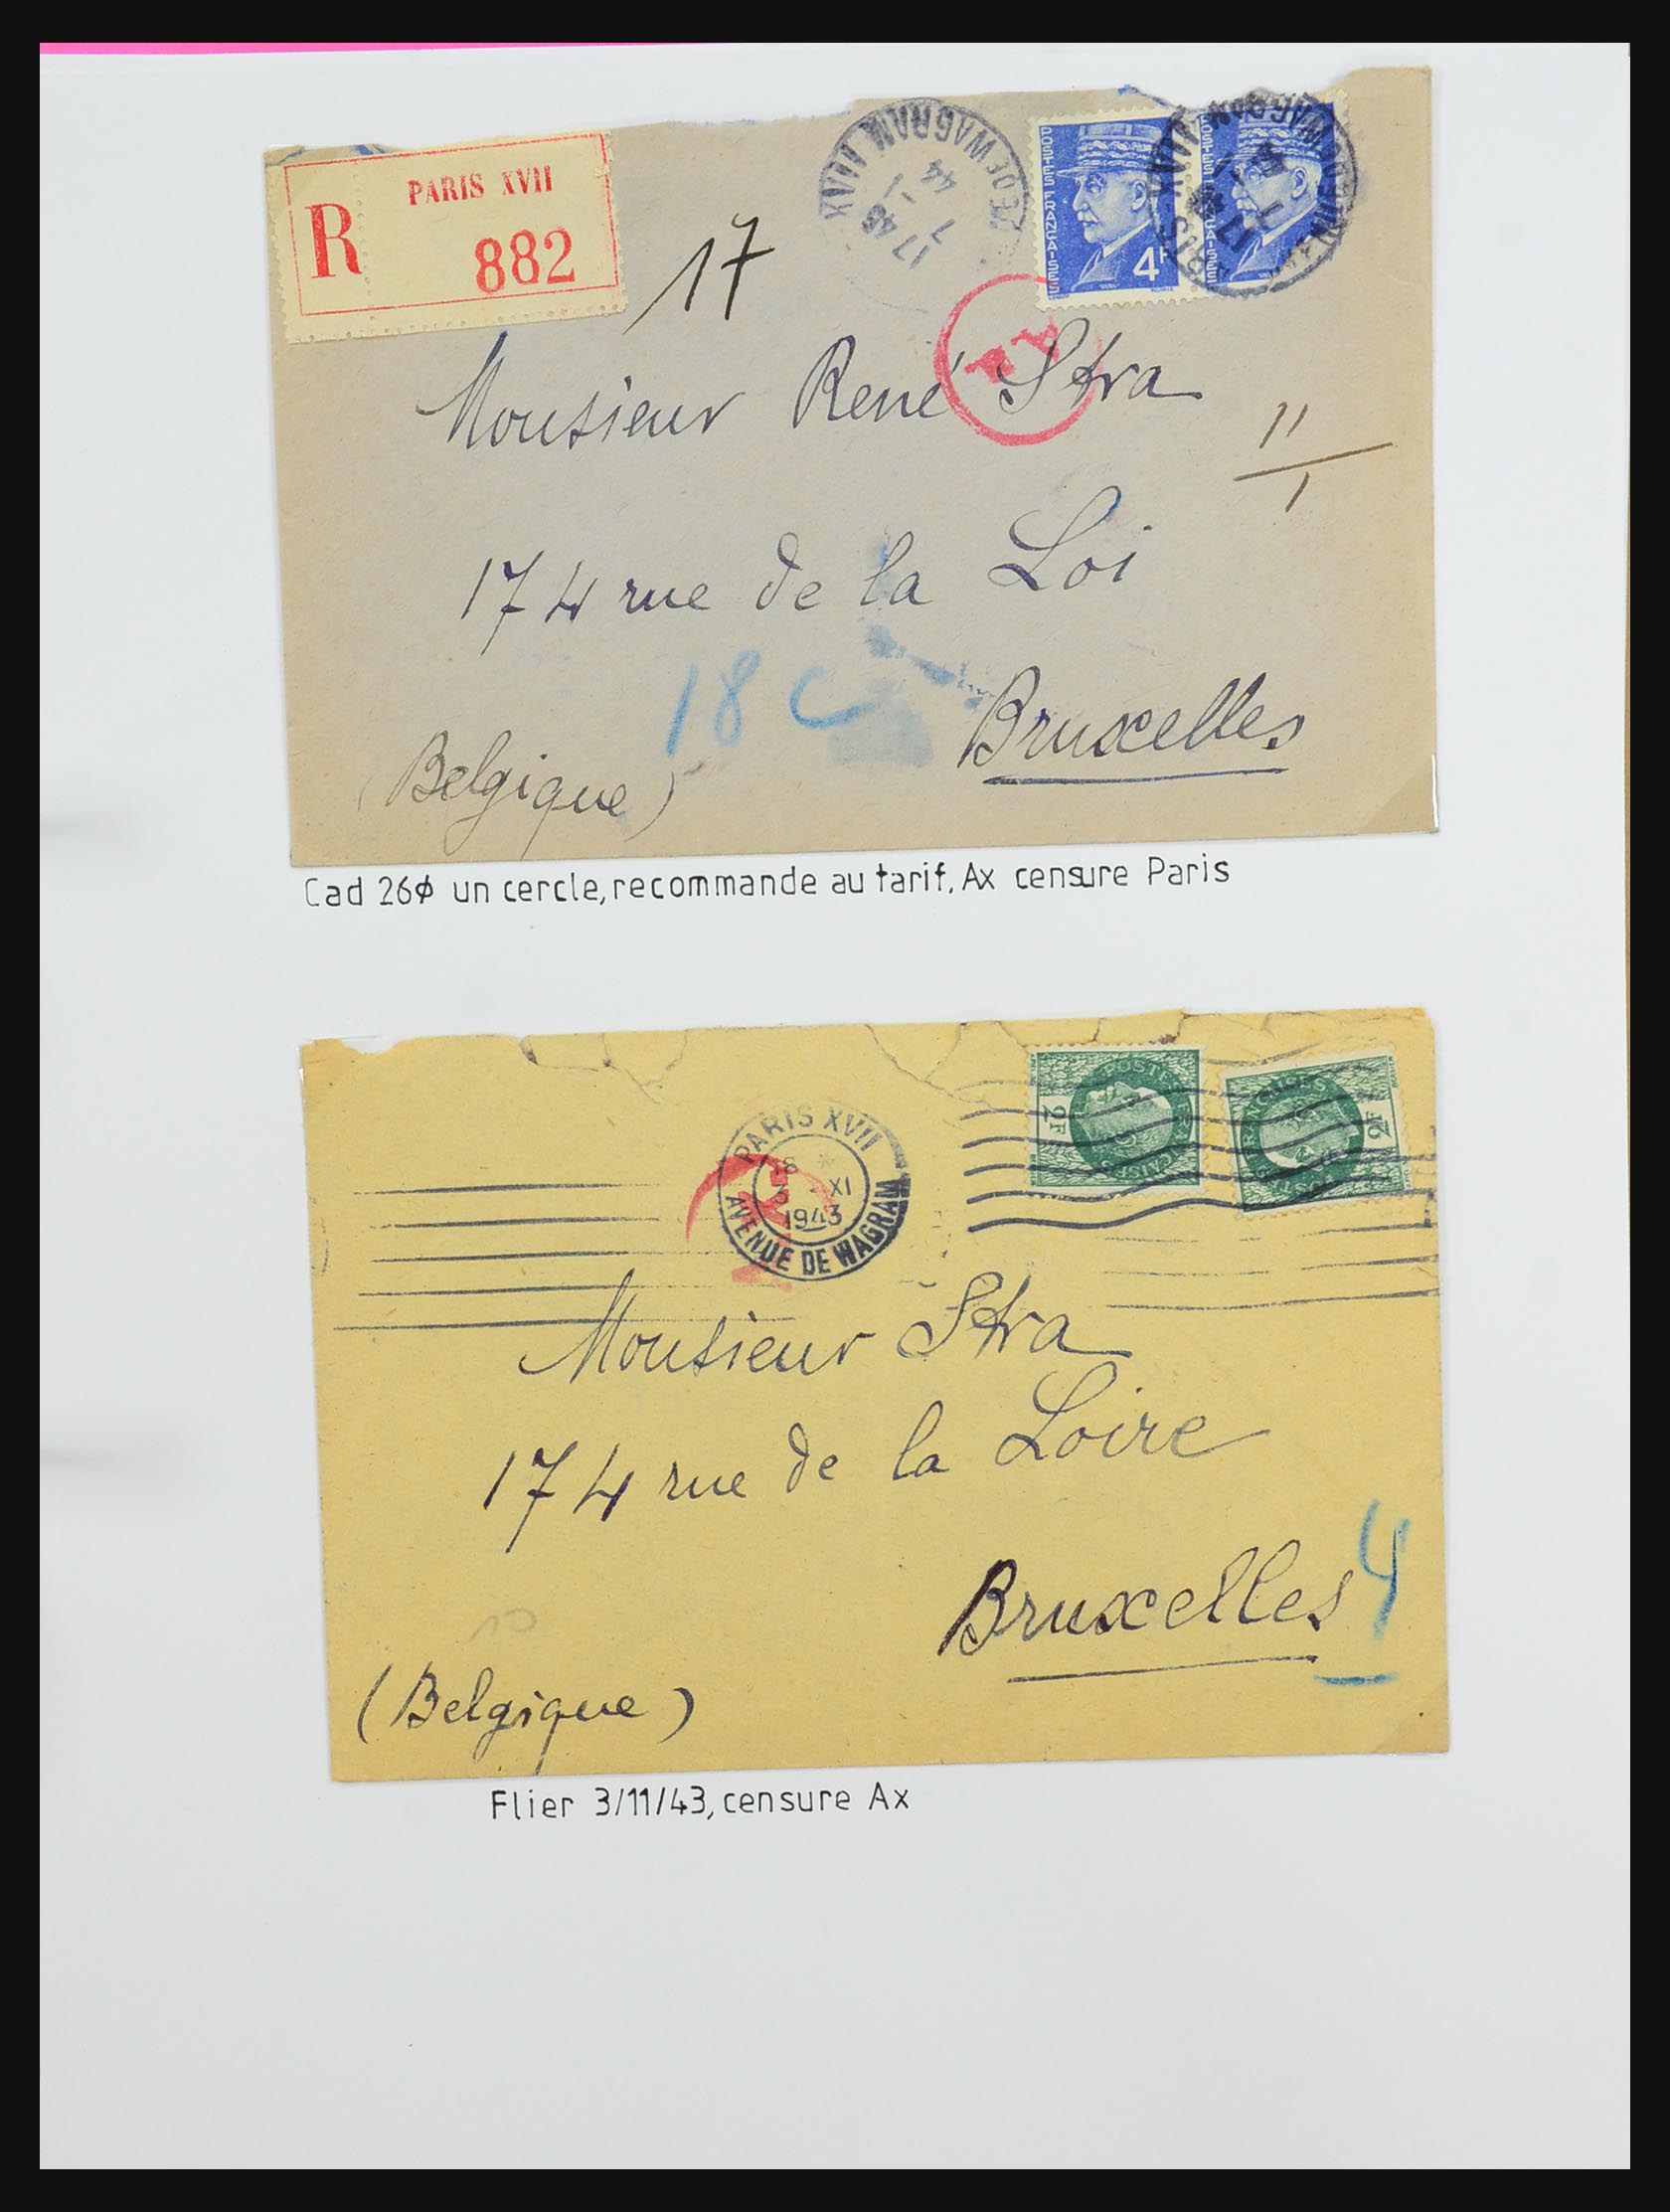 PARIS XVII
R
882
17
WAGRAM
XVII
17 45
7 - 1
44
POSTES FRANÇAISES
4F
POSTES FRANÇAISES
Monsieur René Stra
11
1
174 rue de la Loi
18 C
Bruxelles
(Belgique)
Cad 26ø un cercle, recommande au tarif, Ax censure Paris
PARIS XVII
18 *
3 - XI
1943
AVENUE DE WAGRAM
2F
2F
Monsieur Stra
174 rue de la Loire
Bruxelles
4
(Belgique)
Flier 3/11/43, censure Ax